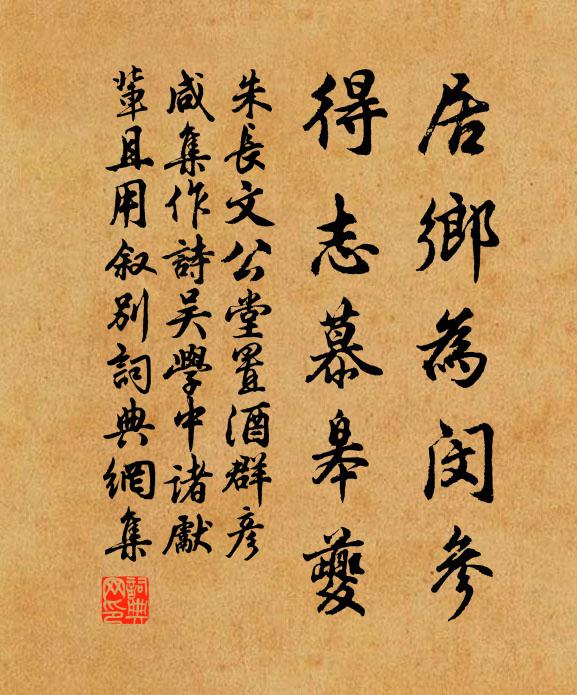 居鄉為閔參
得志慕皋夔
朱長文公堂置酒群彥
咸集作詩吴學中諸獻
輩且用叙別詞典網集
詞典
网印